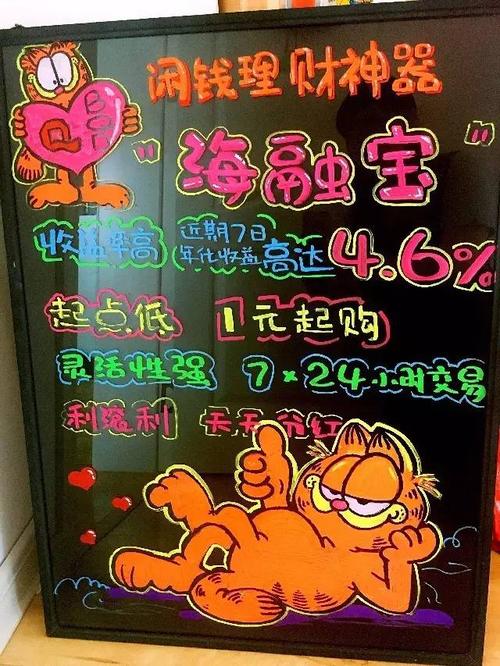 闲钱理财神器
BOB
"海融宝"
收益率高 近期7日
年化收益 高达 4.6%
起点低 1元起购
灵活性强 7×24小时交易
利滚利 天天分红